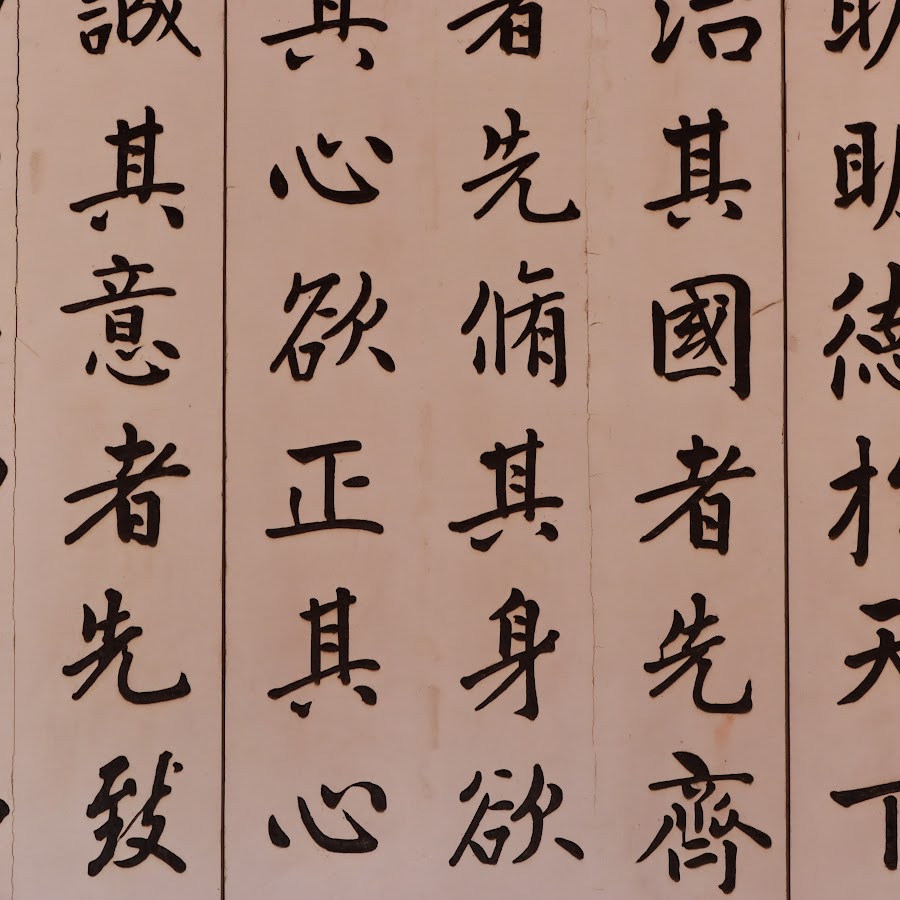 明明德於天下
治其國者先齊
者先脩其身欲
其心欲正其心
誠其意者先致